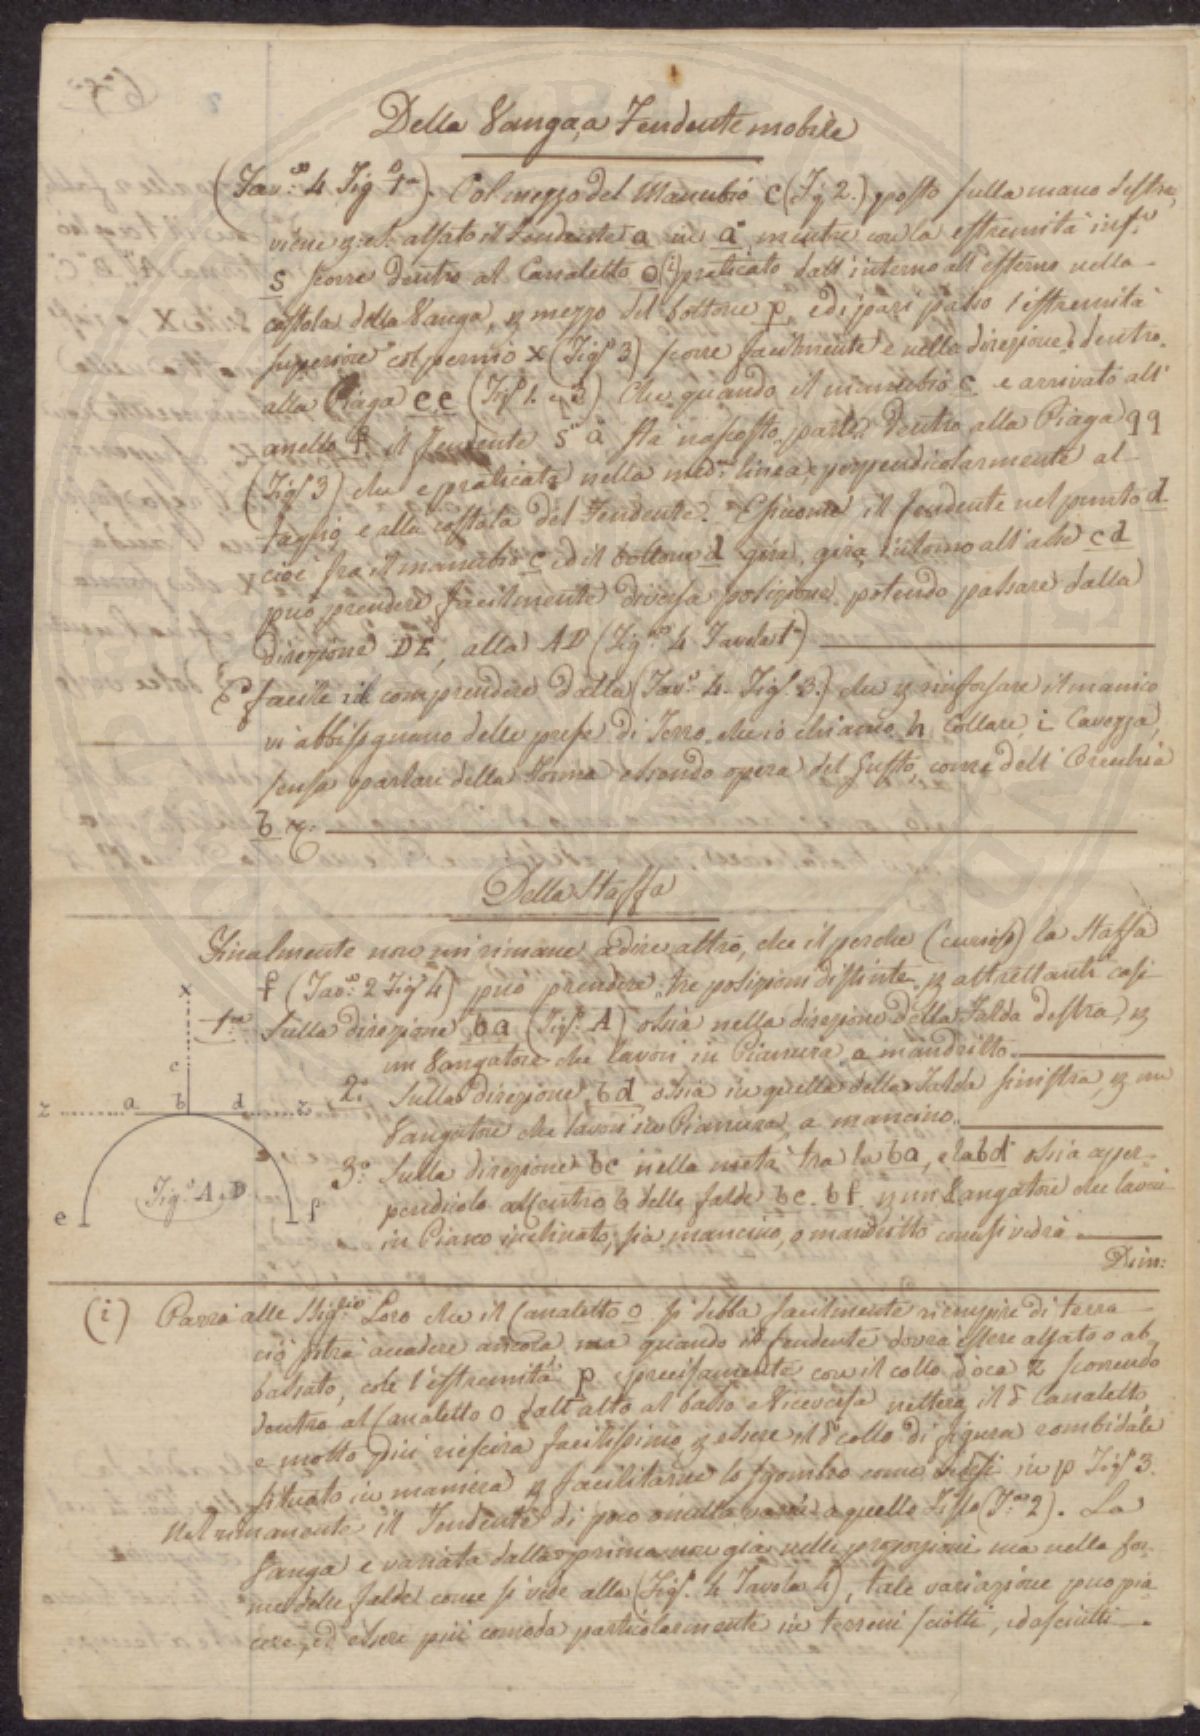 Della Vanga, a Fendente mobile
(Tav: 4 Fig 1ª). Col mezzo del Manubrio c (Fig 2.) posto sulla mano destra,
viene alsato il fendente a in a mentre con la estremità inf:
s scorre dentro al Canaletto o (i) praticato dall'interno all'esterno nella
costola della Vanga, mezzo del bottone p, e di pari passo l'estremità
superiore col pernio X (Figª 3) scorre facilmente e nella direzione dentro
alla Piaga ee (Figª 1. e 2.) Che quando il manubrio c e arrivato all'
anello f. il fendente s a sta nascosto parte dentro alla Piaga qq
(Figª 3) che e praticata nella med: linea, perpendicolarmente al
taglio, e alla costola del Fendente. E siccome il fendente nel punto d
cioè fra il manubrio c ed il bottone d gira, gira intorno all'asse cd
può prendere facilmente diversa posizione potendo passare dalla
direzione DE, alla AD (Fig 4 Tavola 1ª)
E' facile il comprendere dalla (Tav: 4. Figª. 3.) che rinforsare il manico
vi abbisognano delle prese di Ferro che io chiamo h Collare, i Cavezza,
sensa parlare della Forma essendo opera del Gusto, come dell'Orecchia
b
Della Staffa
Finalmente non mi rimane a dire altro, che il perche (curioso) la Staffa
f (Tav: 2 Figª 4) può prendere tre posizioni distinte altrettanti casi
1ª Sulla direzione ba (Figª. A) ossia nella direzione della Falda destra,
un Vangatore che lavori in Pianura a mandritto.
2: Sulla direzione bd ossia in quella della Falda sinistra, un
Vangatore che lavori in Pianura, a mancino.
3: Sulla direzione bc nella metà tra la ba, e la bd ossia a per-
pendicolo al centro b delle falde be. bf. un Vangatore che lavori
in Piano inclinato, sia mancino, o mandritto come si vedrà.
x
c
z a b d z
Figª A D
e f
Dim:
(i) Parrà alle Loro che il Canaletto o si debba facilmente riempire di terra
ciò potrà accadere ancora ma quando il fendente dovrà essere alsato o ab
bassato, colle l'estremità p e precisamente con il collo d'oca z scorrendo
dentro al Canaletto o dall'alto al basso e Viceversa netterà il Canaletto,
e molto più riescirà facilissimo essere il collo di figura rombidale
situato in maniera facilitarne lo sgombro come vedesi in p Figª 3.
Nel rimanente il Fendente di poco o nulla varia a quello Fisso (T: 2). La
Vanga e variata dalla prima non già nelle proporzioni ma nella for-
ma delle falde come si vede alla (Figª. 4 Tavola 4), tale variazione puo pia
cere, ed essere più comoda particolarmente in terreni sciolti, ed asciutti.